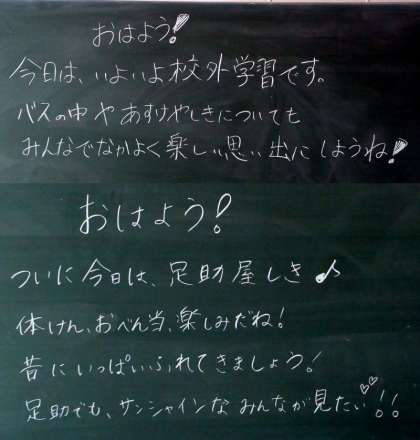 おはよう!
今日は、いよいよ校外学習です。
バスの中やあすけやしきについても
みんなでなかよく楽しい思い出にしようね!
おはよう!
ついに今日は、足助屋しき♪
体けん、おべん当、楽しみだね!
昔にいっぱいふれてきましょう!
足助でも、サンシャインなみんなが見たい♡♡!!